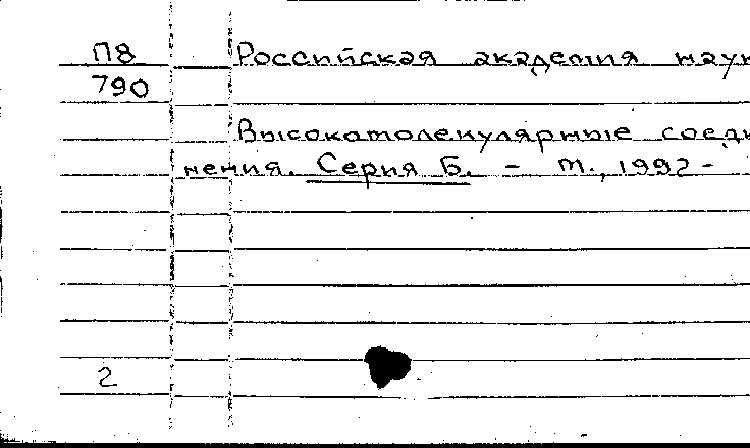 П8 Российская академия наук
790
Высокомолекулярные соеди
нения. Серия Б. - М., 1992 -
2